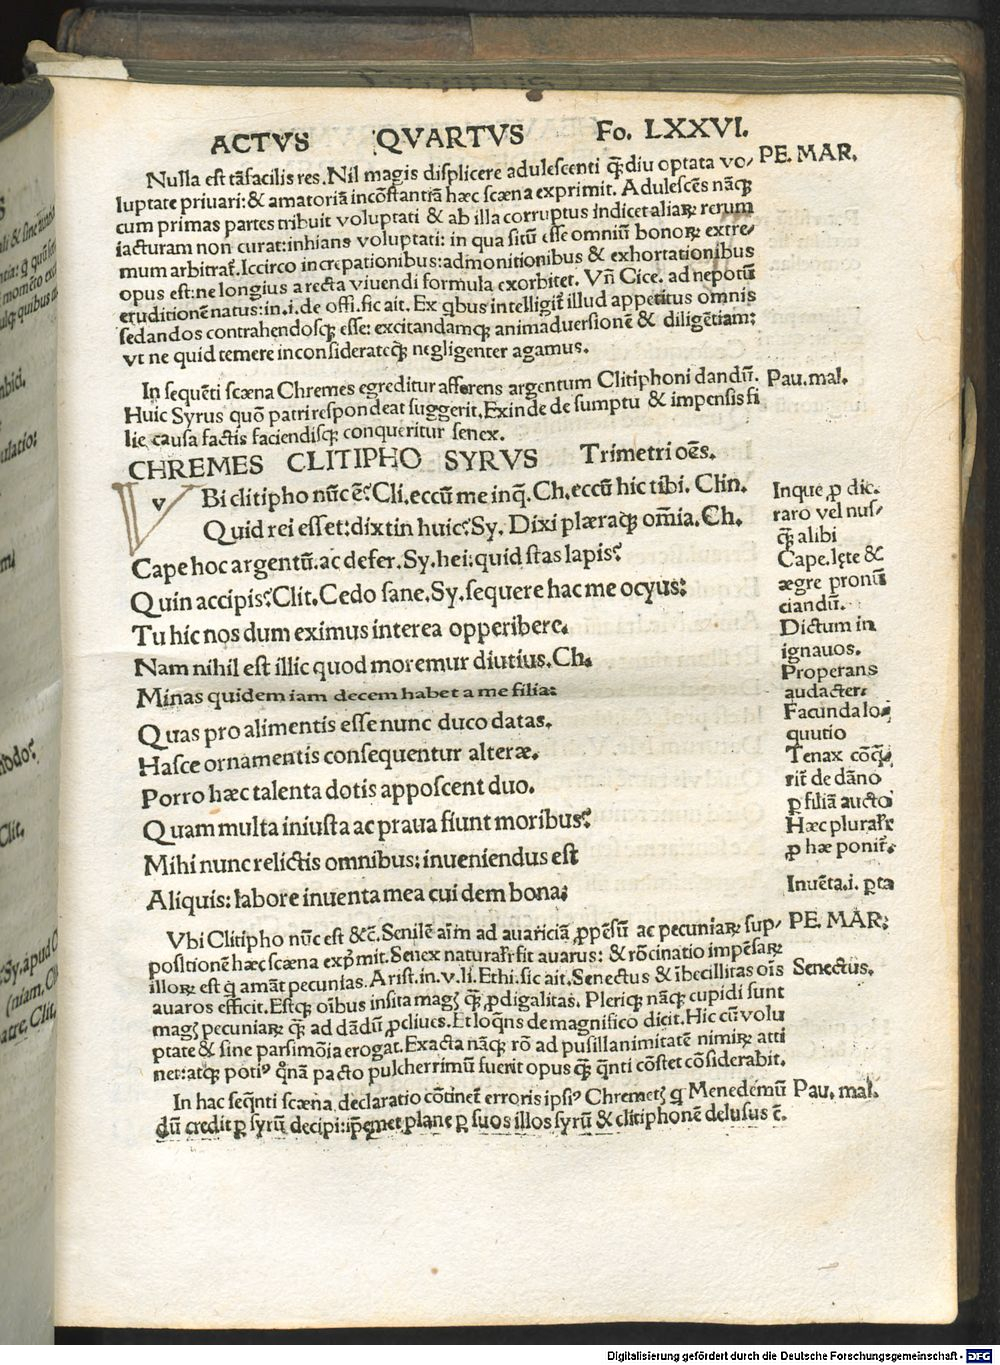 ACTVS QVARTVS Fo. LXXVI.
Nulla est tãfacilis res. Nil magis displicere adulescenti q̃diu optata vo/ PE. MAR.
luptate priuari: & amatoriã incõstantiã hæc scæna exprimit. Adulescẽs nãqꝫ
cum primas partes tribuit voluptati & ab illa corruptus indicet aliaꝝ rerum
iacturam non curat: inhians voluptati: in qua sitũ esse omniũ bonoꝝ extre/
mum arbitrat̃. Iccirco increpationibus: admonitionibus & exhortationibus
opus est: ne longius a recta viuendi formula exorbitet. Vñ Cice. ad nepotũ
eruditionẽ natus: in. i. de offi. sic ait. Ex qbus intelligit̃ illud appetitus omnis
sedandos contrahendosqꝫ esse: excitandamqꝫ animaduersionẽ & diligẽtiam:
vt ne quid temere inconsiderateqꝫ negligenter agamus.
In sequẽti scæna Chremes egreditur afferens argentum Clitiphoni dandũ. Pau. mal.
Huic Syrus quõ patri respondeat suggerit. Exinde de sumptu & impensis fi
lie causa factis faciendisqꝫ conqueritur senex.
CHREMES CLITIPHO SYRVS Trimetri oẽs.
v Bi clitipho nũc ẽ? Cli. eccũ me inq̃. Ch. eccũ hic tibi. Clin. Inque ꝓ dic.
Quid rei esset: dixtin huic? Sy. Dixi plæraqꝫ om̃ia. Ch. raro vel nus/
q̃ alibi
Cape hoc argentũ. ac defer. Sy. hei: quid stas lapis? Cape. lęte &
Quin accipis? Clit. Cedo sane. Sy. sequere hac me ocyus: ægre pronũ
ciandũ.
Tu hic nos dum eximus interea opperibere. Dictum in
ignauos.
Nam nihil est illic quod moremur diutius. Ch. Properans
Minas quidem iam decem habet a me filia: audacter:
Quas pro alimentis esse nunc duco datas. Facunda lo/
quutio
Hasce ornamentis consequentur alteræ. Tenax cõq̃
Porro hæc talenta dotis apposcent duo. rit̃ de dãno
ꝓ filiã aucto
Quam multa iniusta ac praua fiunt moribus? Hæc pluralr̃
ꝓ hæ ponit̃.
Mihi nunc relictis omnibus: inueniendus est
Aliquis: labore inuenta mea cui dem bona: Inuẽta. i. pta
Vbi Clitipho nũc est &c̃. Senilẽ aĩm ad auariciã ꝓpẽsũ ac pecuniaꝝ sup/ PE. MAR:
positionẽ hæc scæna exp̃mit. Senex naturalr̃ fit auarus: & rõcinatio impẽsaꝝ
illoꝝ est q̃ amãt pecunias. Arist. in. v. li. Ethi. sic ait. Senectus & ĩbecillitas oĩs Senectus.
auaros efficit. Estqꝫ oĩbus insita magꝭ q̃ ꝓdigalitas. Pleriqꝫ nãqꝫ cupidi sunt
magꝭ pecuniaꝝ q̃ ad dãdũ ꝓcliues. Et loq̃ns de magnifico dicit. Hic cũ volu
ptate & sine parsimõia erogat. Exacta nãqꝫ rõ ad pusillanimitatẽ nimiꝝ atti
net: atqꝫ potiꝰ q̃nã pacto pulcherrimũ fuerit opus q̃ q̃nti cõstet cõsiderabit.
In hac seq̃nti scæna declaratio cõtinet̃ erroris ipsiꝰ Chremetꝭ q̃ Menedemũ Pau. mal.
dũ credit ꝑ syrũ decipi: ip̃emet plane ꝑ suos illos syrũ & clitiphonẽ delusus ẽ.
Digitalisierung gefördert durch die Deutsche Forschungsgemeinschaft - DFG